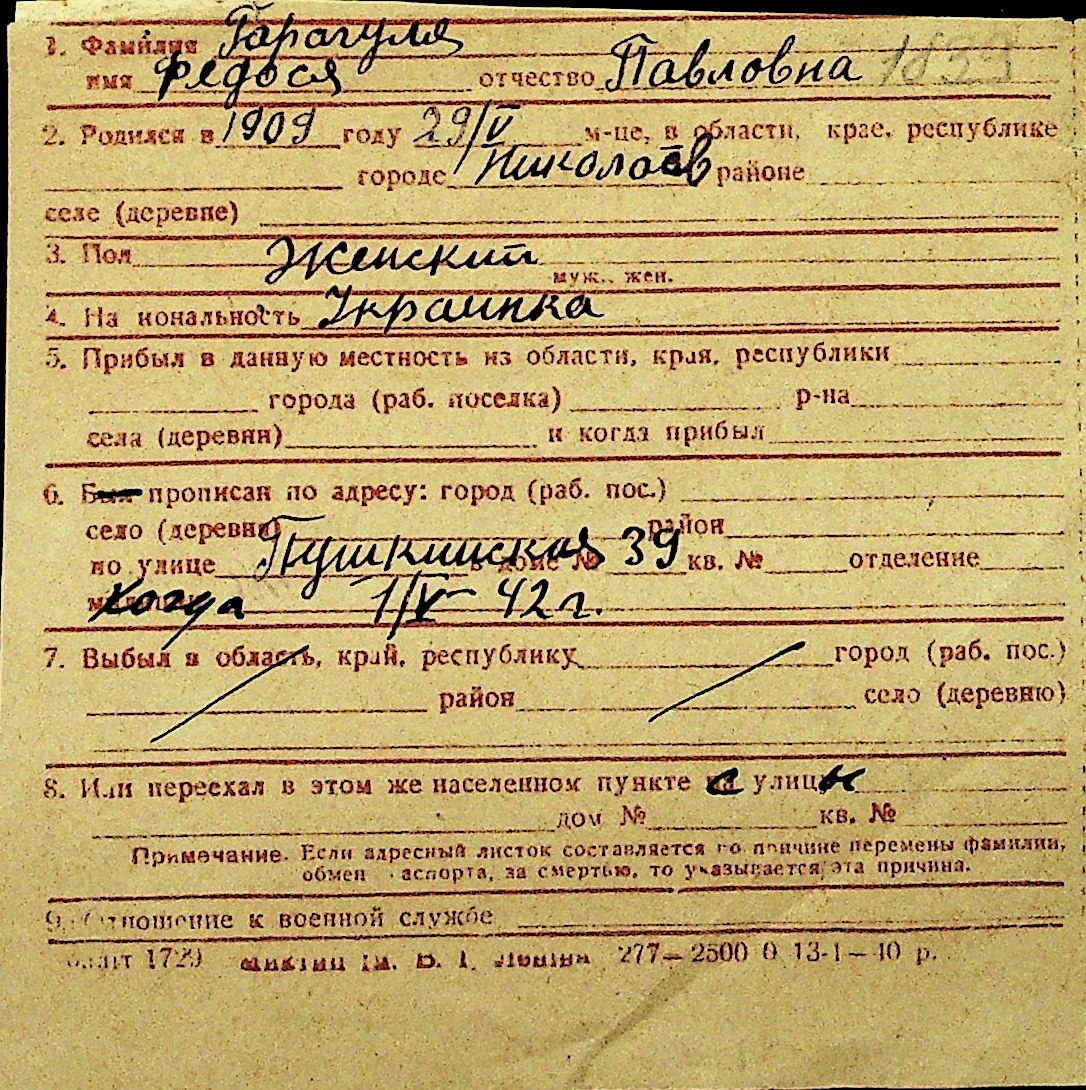 1. Фамилия Гарагуля
имя Федося отчество Павловна
2. Родился в 1909 году 29/V м-це, в области, крае, республике
городе Николаев районе
селе (деревне)
3. Пол Женский
муж., жен.
4. На иональность Украинка
5. Прибыл в данную местность из области, края, республики
города (раб. поселка) р-на
села (деревни) и когда прибыл
6. Был прописан по адресу: город (раб. пос.)
село (деревня) район
по улице Пушкинская в доме № 39 кв. № отделение
Когда 1/V- 42 г.
7. Выбыл в область, край, республику город (раб. пос.)
район село (деревню)
8. Или переехал в этом же населенном пункте с улицы
дом № кв. №
Примечание. Если адресный листок составляется по причине перемены фамилии,
обмен аспорта, за смертью, то указывается эта причина.
9. Отношение к военной службе
1729 277—2500 0 13-1—40 р.